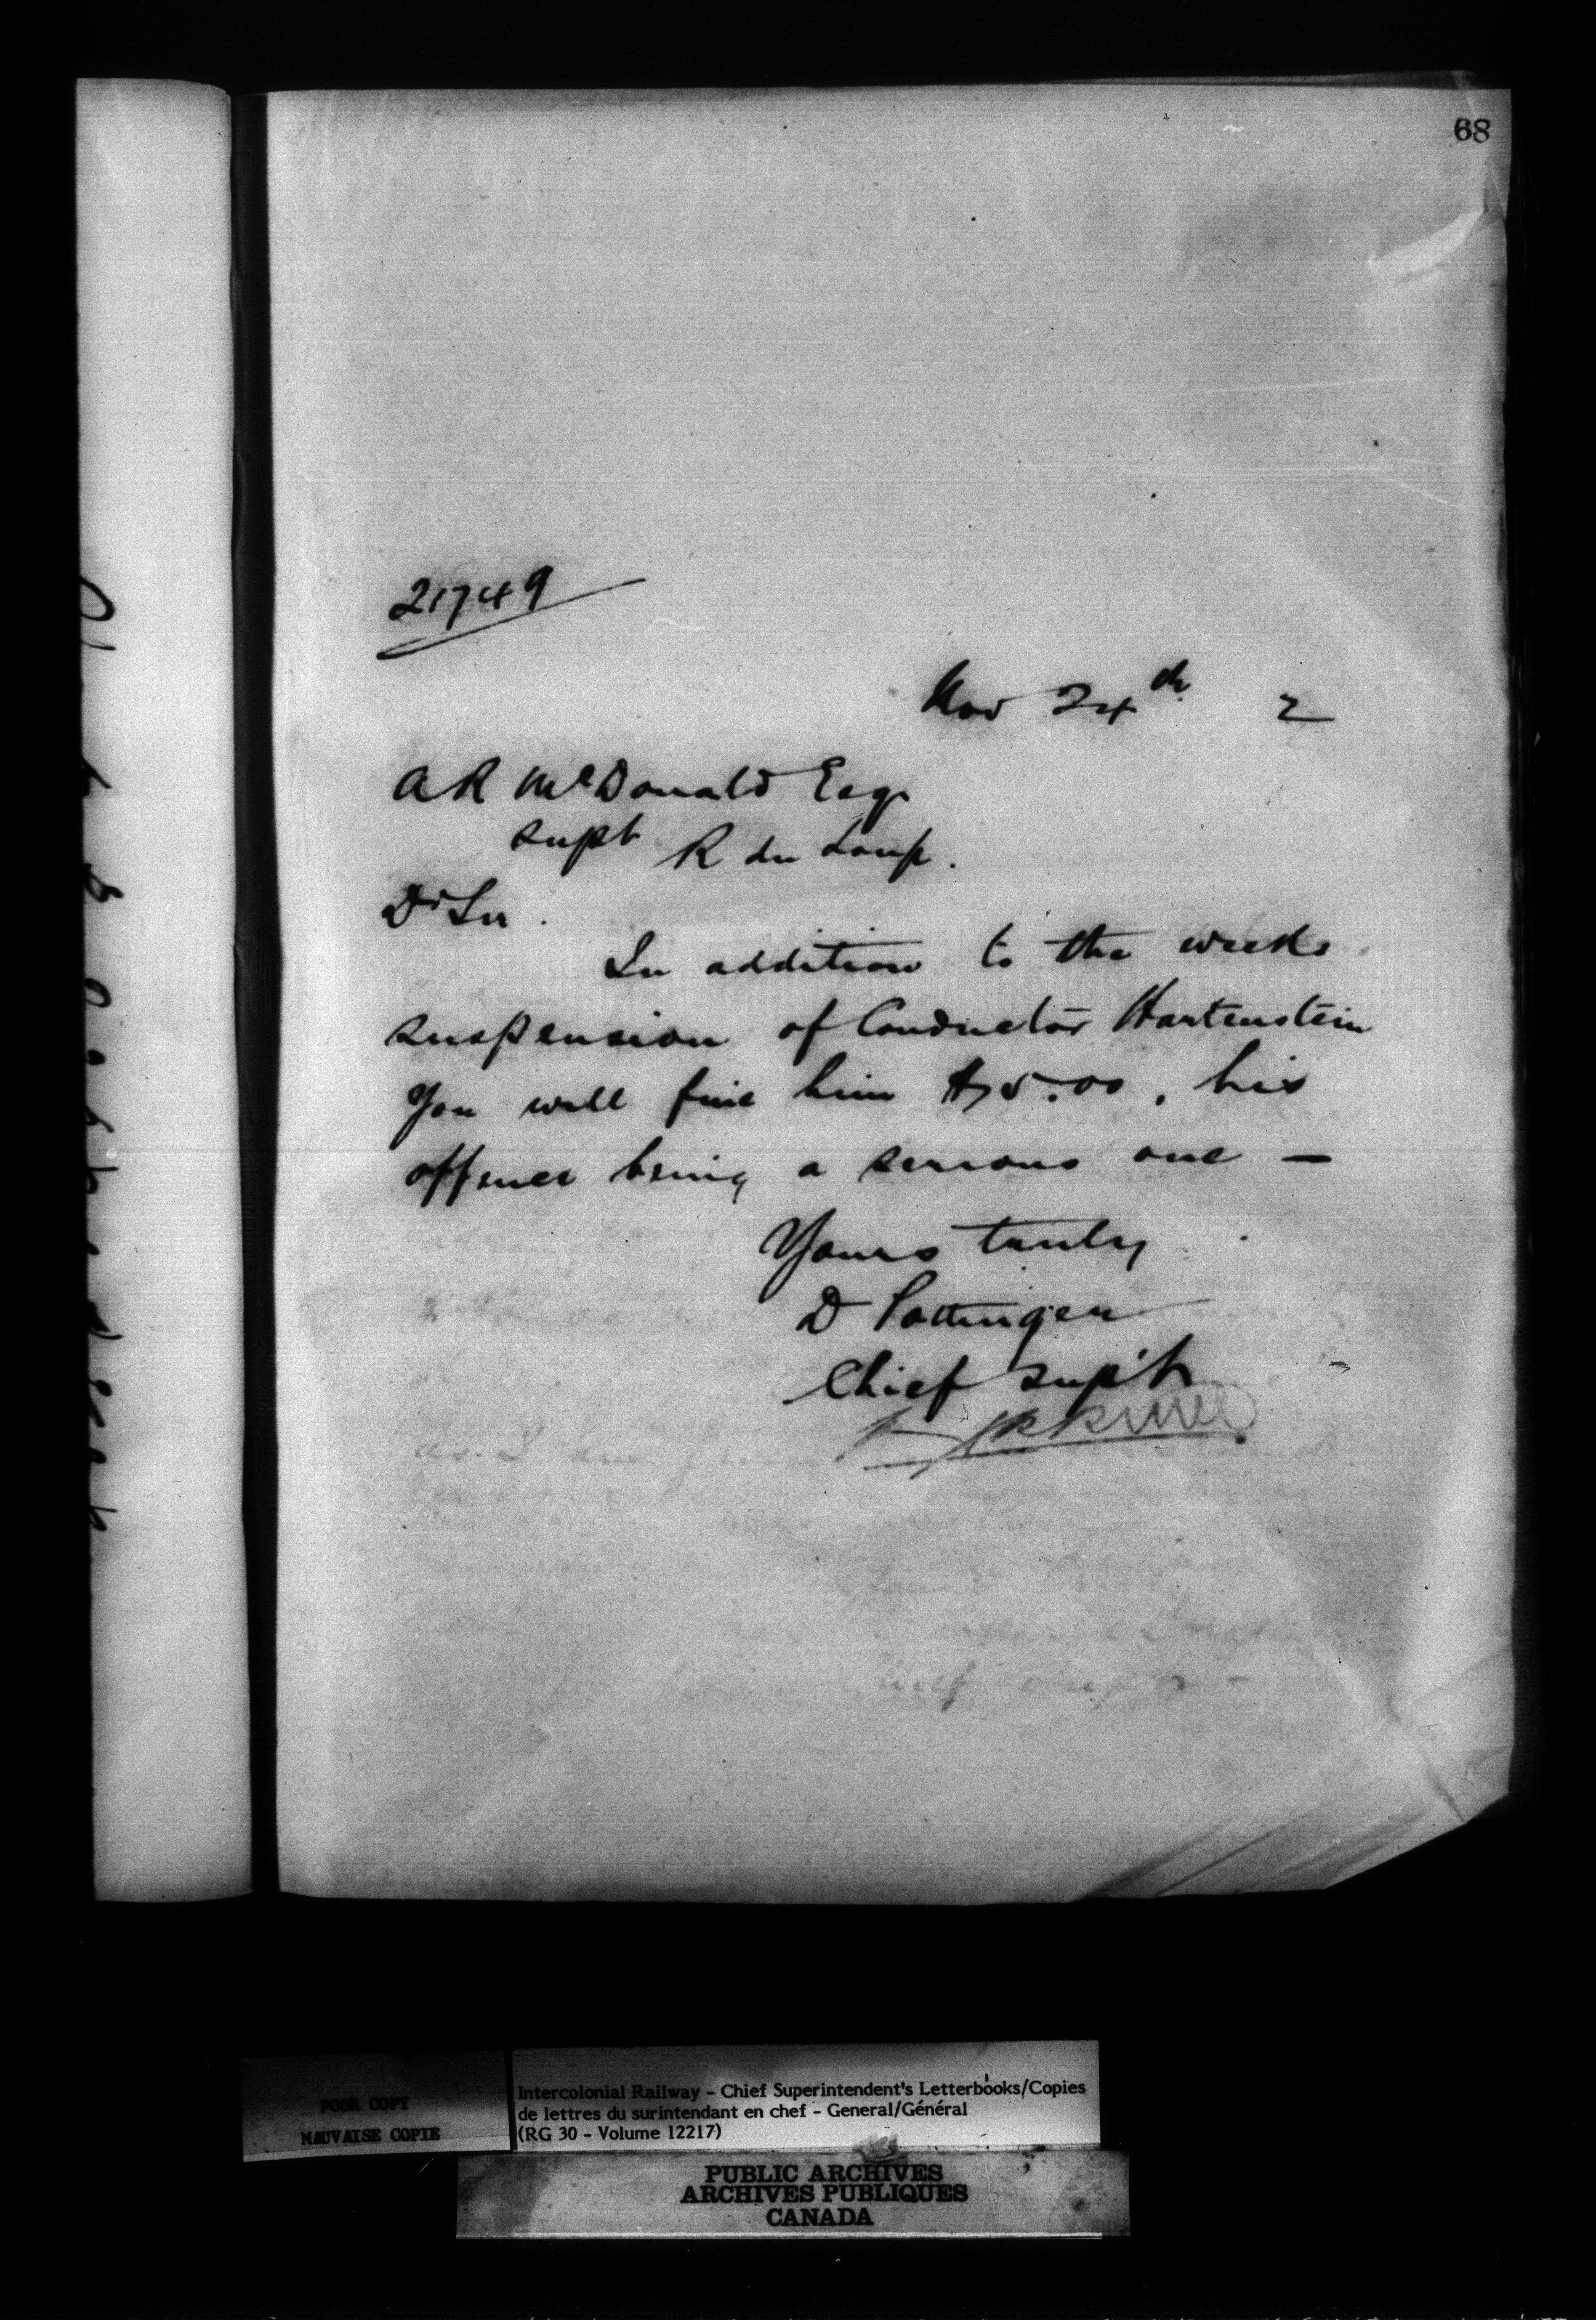 68
21749
Nov 24th 2
A R McDonald Esq
Supt R du Loup.
Dr Sir.
In addition to the weeks
suspension of Conductor Hartenstein
you will fine him $5.00, his
offence being a serious one —
Yours truly
D Pottinger
Chief Supt
POOR COPY
MAUVAISE COPIE
Intercolonial Railway - Chief Superintendent's Letterbooks/Copies
de lettres du surintendant en chef - General/Général
(RG 30 - Volume 12217)
PUBLIC ARCHIVES
ARCHIVES PUBLIQUES
CANADA